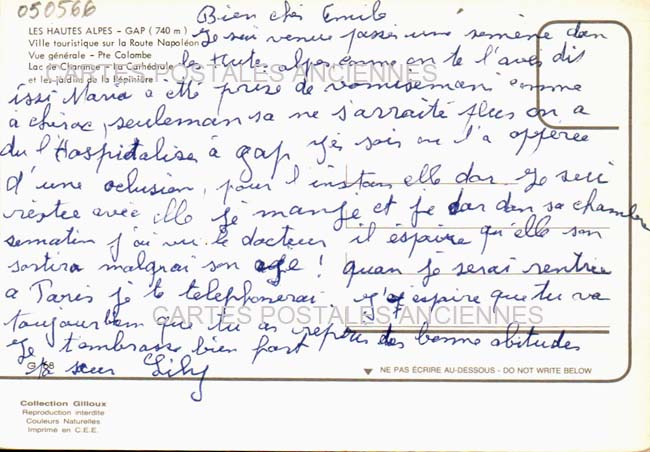 050566
Bien cher Emile
LES HAUTES ALPES - GAP (740 m)
Ville touristique sur la Route Napoléon
Vue générale - Pte Colombe
Lac de Charance - La Cathédrale
et les jardins de la Pépinière
Je sui venue passer une semene dan
les hutes alpes comme on te l'avés dit
issi Maria a etté prise de vomisemant comme
a chirac, seuleman sa ne s'arraité plus on a
du l'Hospitalisé à gap, yès soir on l'a opperée
d'une oclusion, pour l'instan elle dor Je sui
restee avec elle je manje et je dor dan sa chambre
se matin j'ai vu le docteur il espaire qu'elle son
sortira malgrai son age! quan je serai rentree
a Paris je te telephonerai. J'espire que tu va
toujour bien que tu as repris des bonne abitudes
Je t'embrasse bien fort
ta sœur Lily
CARTES POSTALES ANCIENNES
CARTES POSTALES ANCIENNES
G 68
NE PAS ÉCRIRE AU-DESSOUS - DO NOT WRITE BELOW
Collection Gilloux
Reproduction interdite
Couleurs Naturelles
Imprimé en C.E.E.